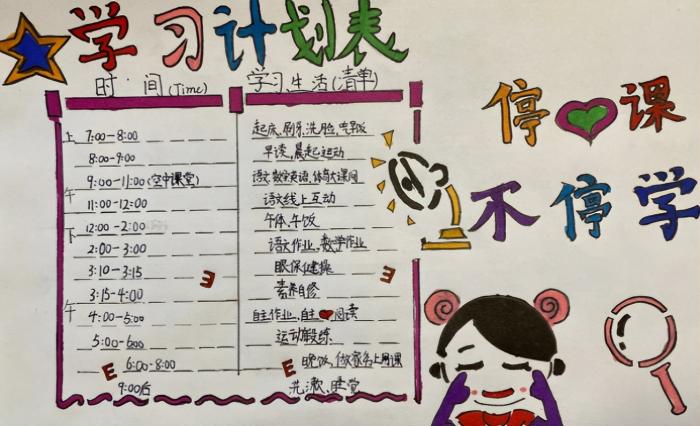 学习计划表
时间(Time) 学习生活(清单)
停课
不停学
上午
7:00-8:00 起床、刷牙、洗脸、吃早饭
8:00-9:00 早读、晨起运动
9:00-11:00(空中课堂) 语文数学英语、体育大课间
11:00-12:00 语文线上互动
下午
12:00-2:00 午休、午饭
2:00-3:00 语文作业、数学作业
3:10-3:15 眼保健操
3:15-4:00 素养自修
4:00-5:00 自主作业、自主阅读
5:00-6:00 运动锻炼
6:00-8:00 晚饭、做家务上网课
9:00后 洗漱、睡觉
E
E
E
E